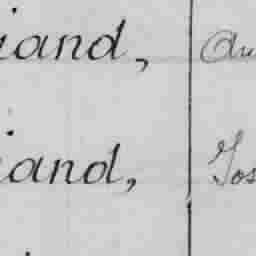 iand, Au
iand, Jos